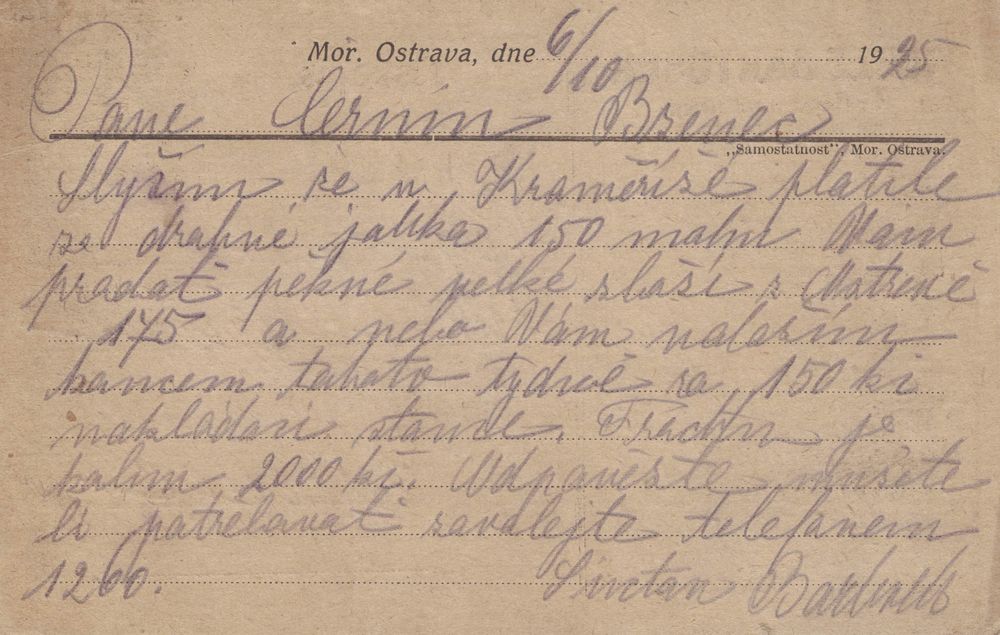 Mor. Ostrava, dne 6/10 1925
Pane Černín Bzenec
„Samostatnost“, Mor. Ostrava.
Slyšim že v Kroměřížě platile
za drabné jablka 150 mohu Vám
pradať pěkné velké zbáší z
175 a nebo Vám naložím
koncem tohoto tydně za 150 kč
nakládací stanice. Fracht je
kolim 2000 kč. Odpovězte mužete
li patřebavať zavolejte telefonem
1260.